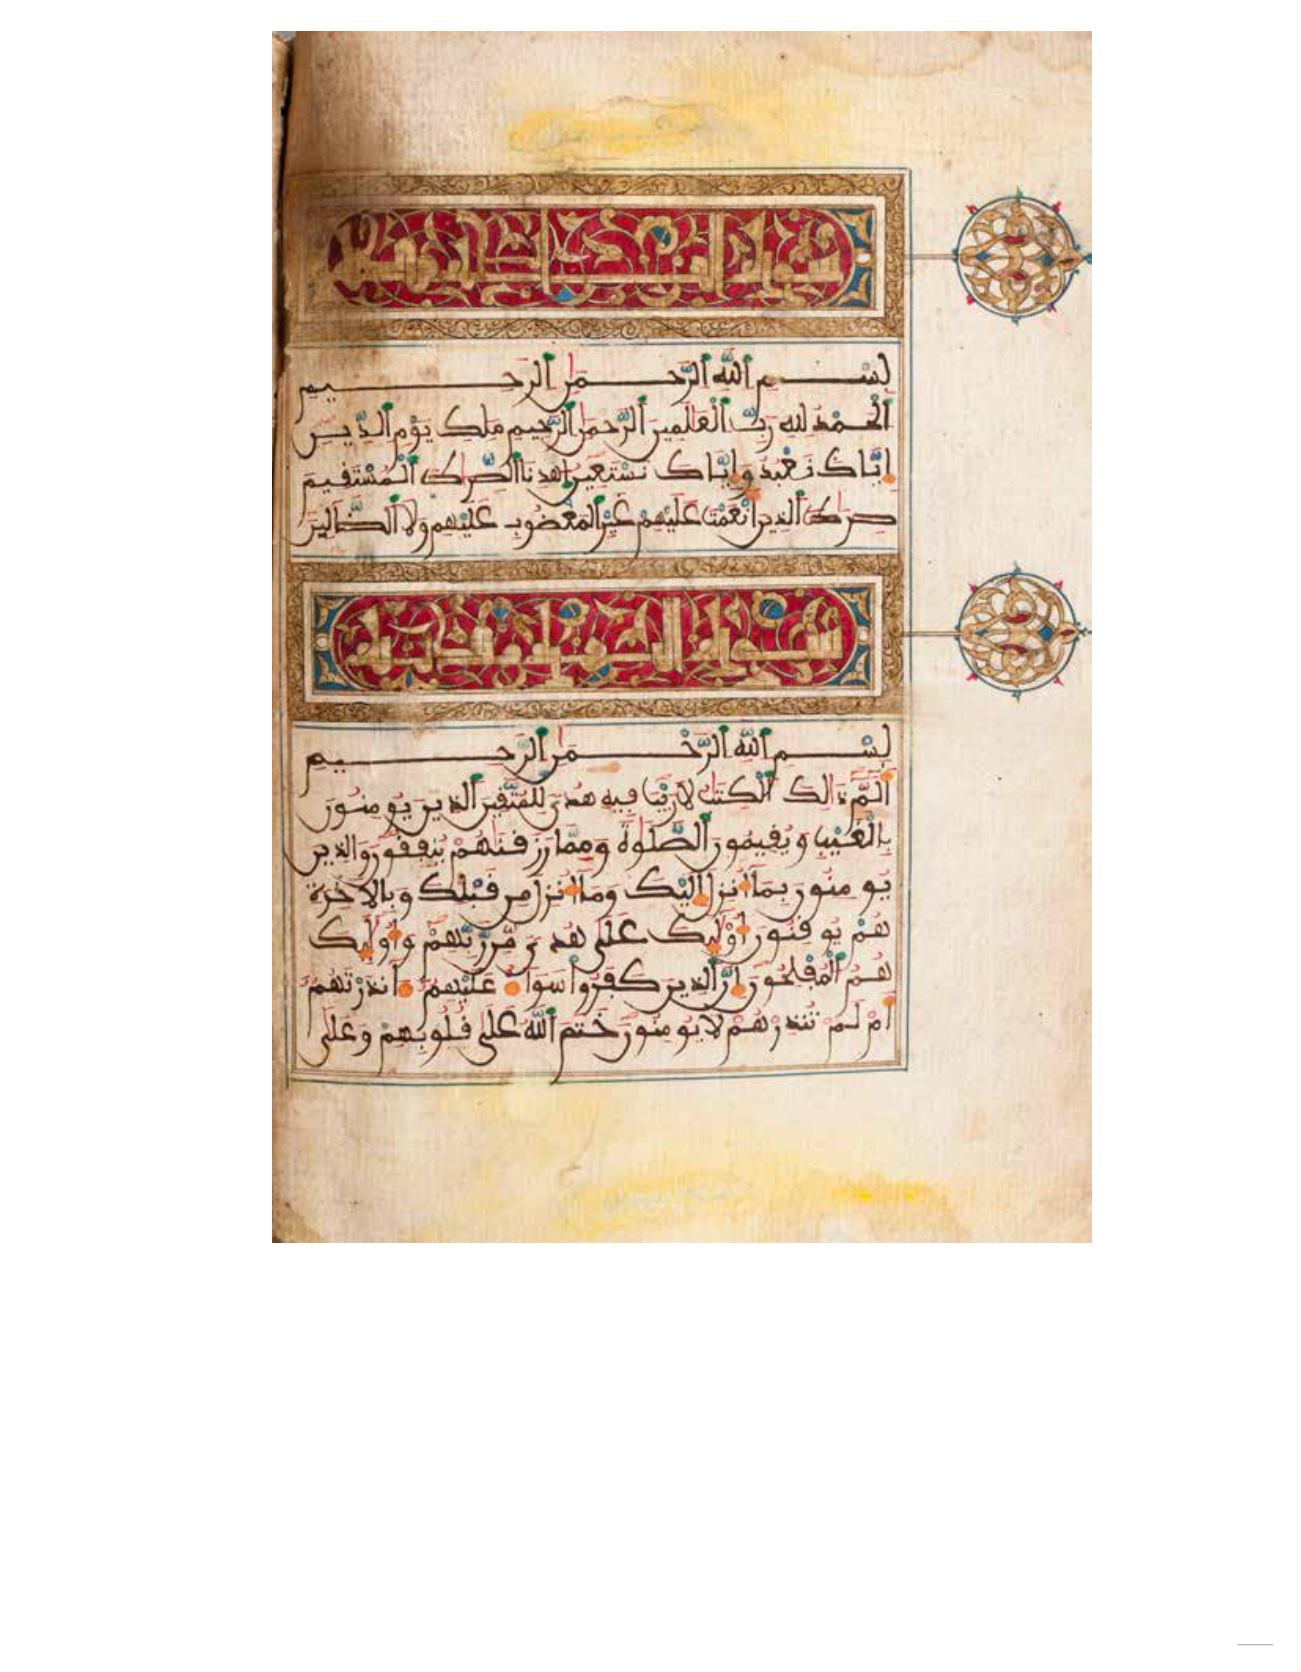 بسم الله الرحمن الرحيم
الحمد لله رب العلمين الرحمن الرحيم ملك يوم الدين
اياك نعبد واياك نستعين اهدنا الصرط المستقيم
صرط الذين انعمت عليهم غير المغضوب عليهم ولا الضالين
بسم الله الرحمن الرحيم
الم ذالك الكتب لا ريب فيه هدى للمتقين الذين يومنون
بالغيب ويقيمون الصلوة ومما رزقنهم ينفقون والذين
يومنون بما انزل اليك وما انزل من قبلك وبالاخرة
هم يوقنون اوليك على هدى من ربهم واوليك
هم المفلحون ان الذين كفروا سوا عليهم انذرتهم
ام لم تنذرهم لا يومنون ختم الله على قلوبهم وعلى